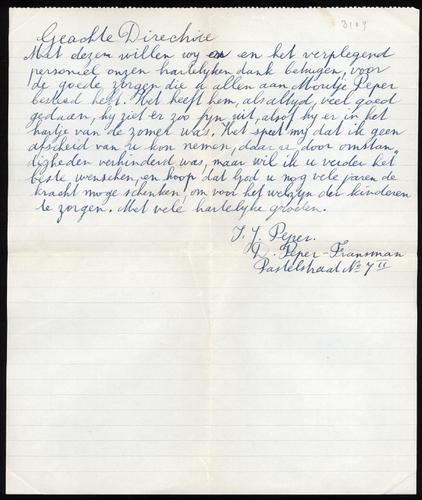 3104
Geachte Directrice
Met dezen willen wy en en het verplegend
personeel onzen hartelyken dank betuigen, voor
de goede zorgen die u allen aan Mourtje Peper
besteed heeft. Het heeft hem, als altyd, veel goed
gedaan, hy ziet er zoo fyn uit, alsof hy er in het
hartje van de zomer was. Het speet my dat ik geen
afscheid van u kon nemen, daar u, door omstan„
digheden verhinderd was, maar wil ik u verder het
beste wenschen, en hoop dat God u nog vele jaren de
kracht moge schenken, om voor het welzyn der kinderen
te zorgen. Met vele hartelyke groeten.
J. Peper.
D. Peper-Fransman
Pastelstraat No 7 II